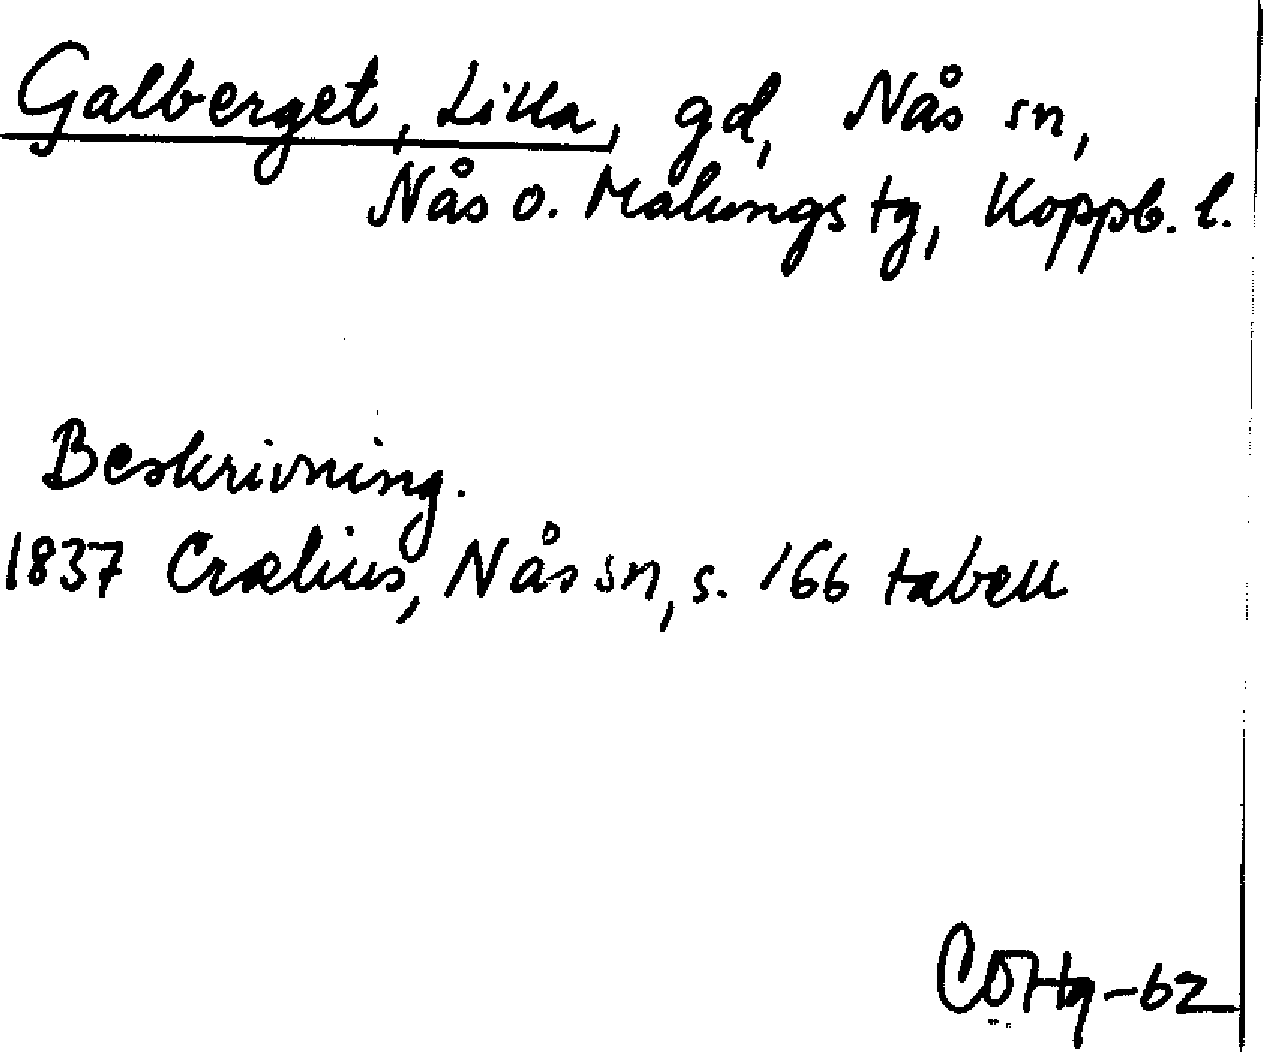 Galberget, Lilla, gd, Nås sn,
Nås o. Malungs tg, Koppb. l.
Beskrivning.
1837 Crælius, Nås sn, s. 166 tabell